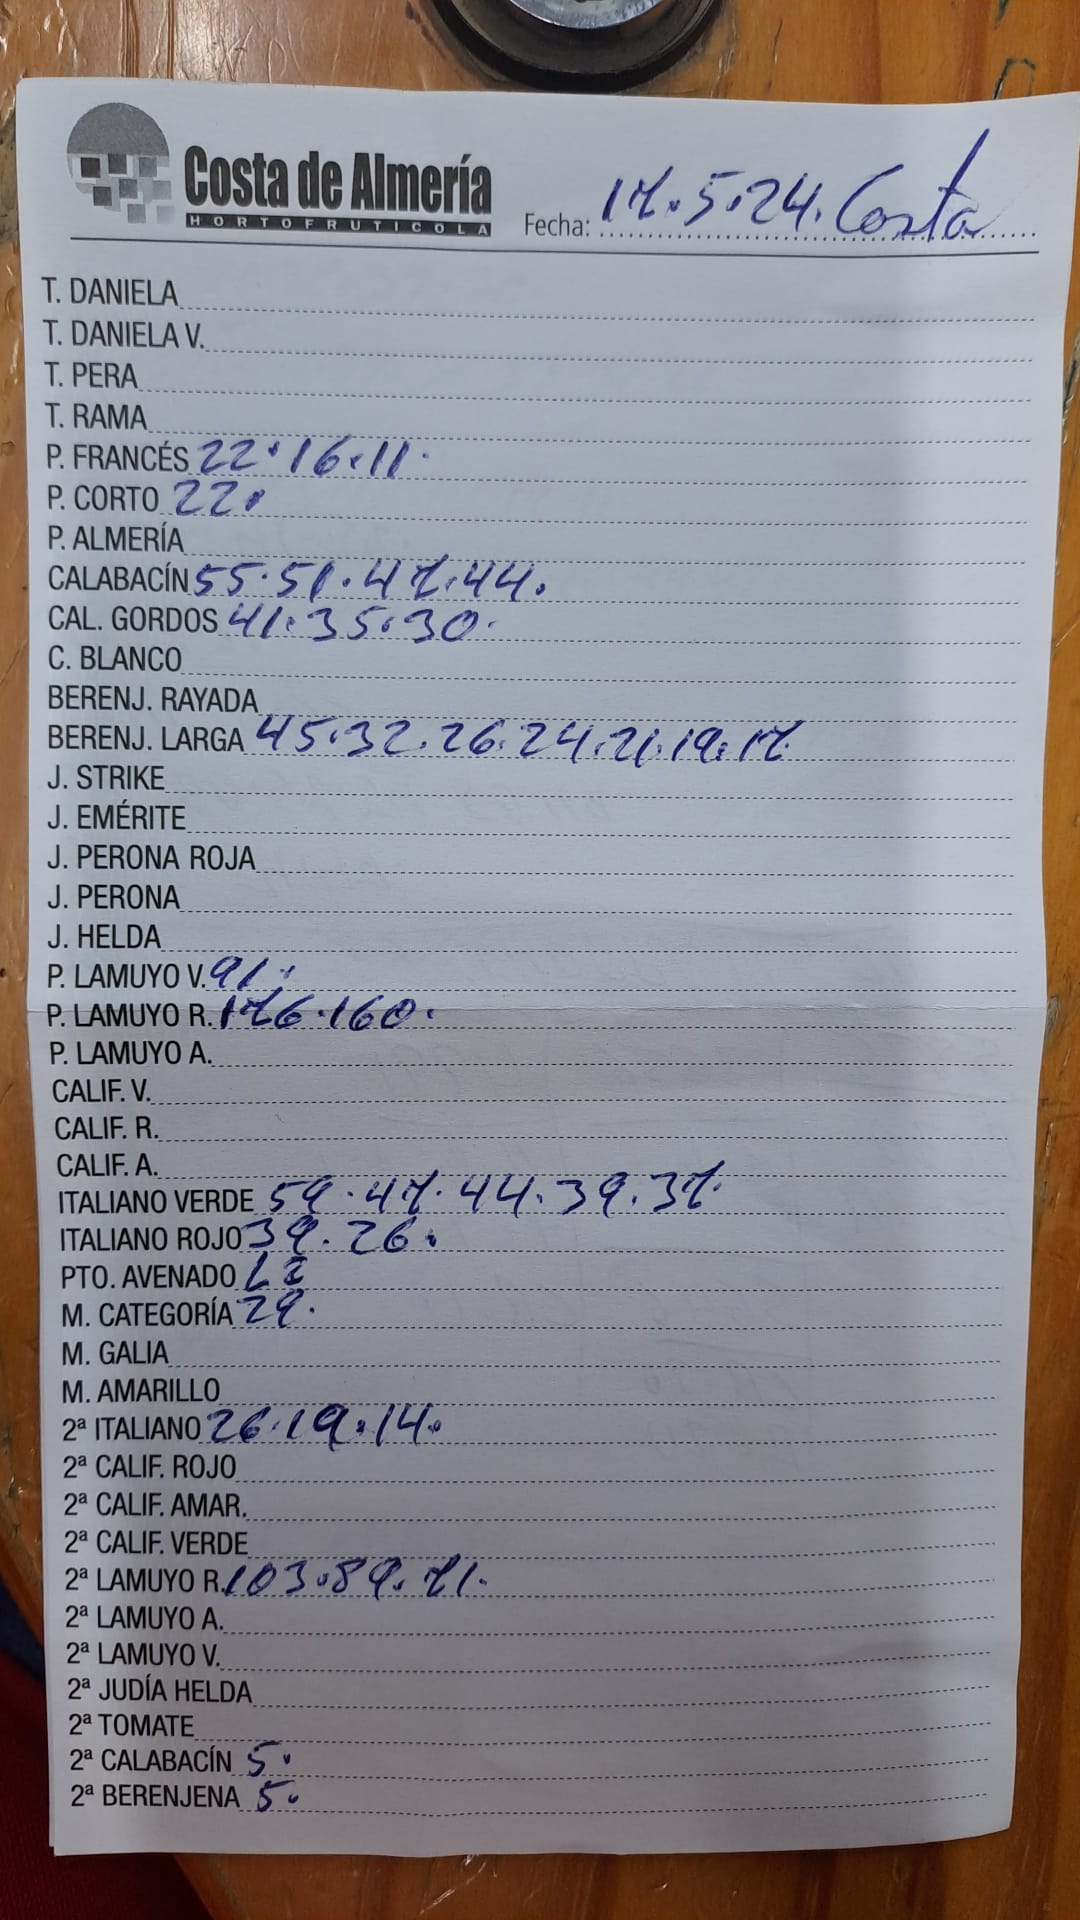 Costa de Almería
HORTOFRUTICOLA
Fecha: 17.5.24. Costa
T. DANIELA
T. DANIELA V.
T. PERA
T. RAMA
P. FRANCÉS 22.16.11.
P. CORTO 22.
P. ALMERÍA
CALABACÍN 55.51.47.44.
CAL. GORDOS 41.35.30.
C. BLANCO
BERENJ. RAYADA
BERENJ. LARGA 45.32.26.24.21.19.17.
J. STRIKE
J. EMÉRITE
J. PERONA ROJA
J. PERONA
J. HELDA
P. LAMUYO V. 91.
P. LAMUYO R. 176.160.
P. LAMUYO A.
CALIF. V.
CALIF. R.
CALIF. A.
ITALIANO VERDE 59.47.44.39.37.
ITALIANO ROJO 39.26.
PTO. AVENADO
M. CATEGORÍA 29.
M. GALIA
M. AMARILLO
2ª ITALIANO 26.19.14.
2ª CALIF. ROJO
2ª CALIF. AMAR.
2ª CALIF. VERDE
2ª LAMUYO R. 103.89.71.
2ª LAMUYO A.
2ª LAMUYO V.
2ª JUDÍA HELDA
2ª TOMATE
2ª CALABACÍN 5.
2ª BERENJENA 5.